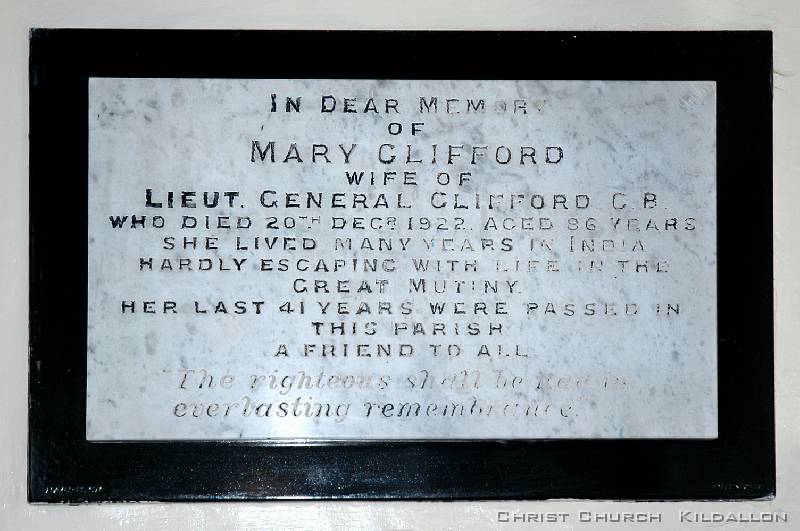 IN DEAR MEMORY
OF
MARY CLIFFORD
WIFE OF
LIEUT. GENERAL CLIFFORD C.B.
WHO DIED 20TH DECR. 1922. AGED 86 YEARS
SHE LIVED MANY YEARS IN INDIA
HARDLY ESCAPING WITH LIFE IN THE
GREAT MUTINY.
HER LAST 41 YEARS WERE PASSED IN
THIS PARISH
A FRIEND TO ALL.
"The righteous shall be had in
everlasting remembrance."
CHRIST CHURCH KILDALLON